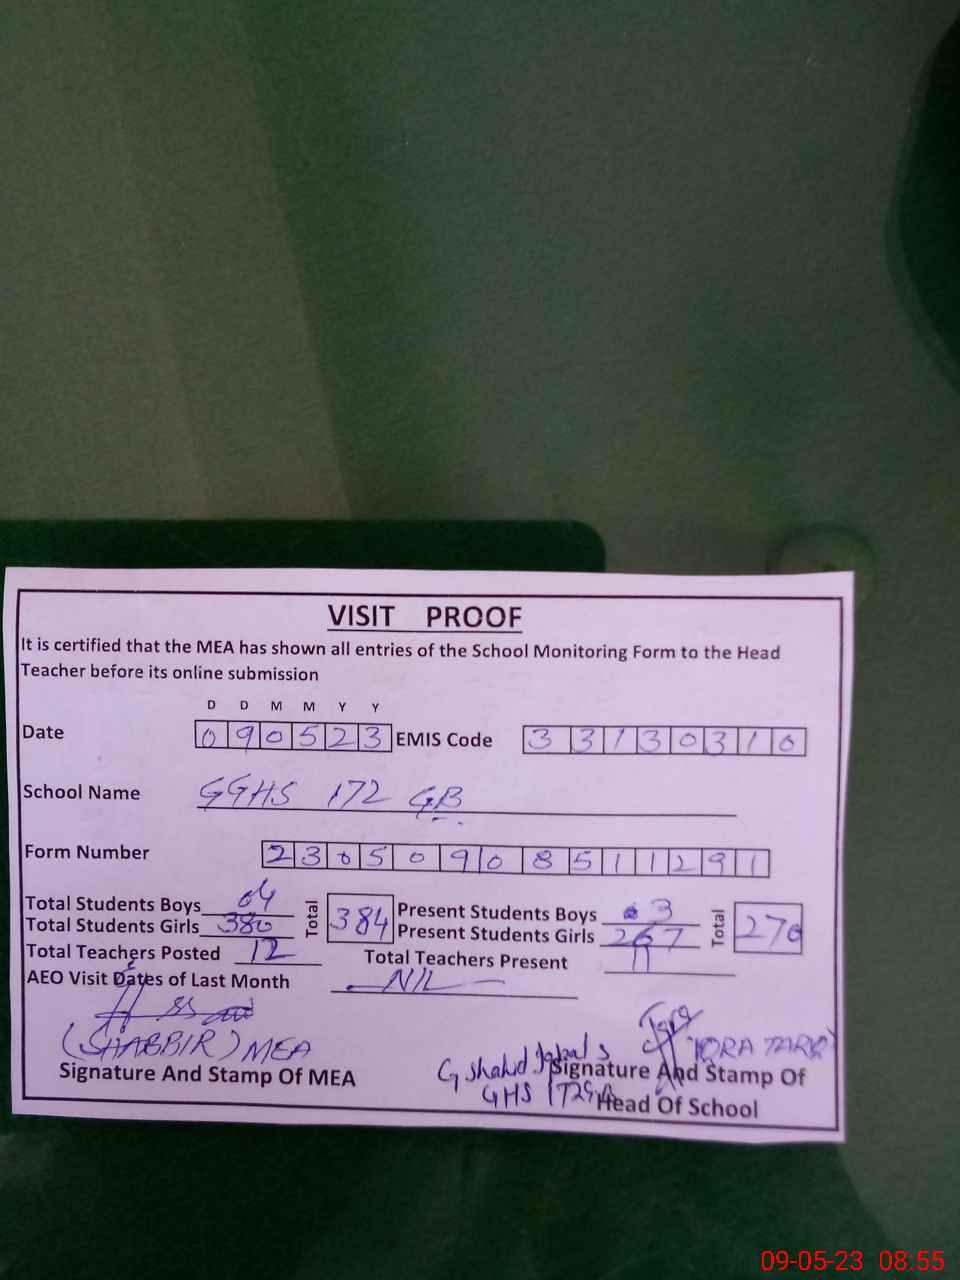 VISIT PROOF
It is certified that the MEA has shown all entries of the School Monitoring Form to the Head
Teacher before its online submission
D D M M Y Y
Date 090523 EMIS Code 33130310
School Name GGHS 172 GB
Form Number 2305090851291
Total Students Boys 04 Total 384 Present Students Boys 3 Total 270
Total Students Girls 380 Present Students Girls 267
Total Teachers Posted 12 Total Teachers Present 11
AEO Visit Dates of Last Month NIL
(SHABBIR) MEA IQRA TARIQ
Signature And Stamp Of MEA G Shahid Iqbal Signature And Stamp Of
GHS 172 Head Of School
09-05-23 08:55